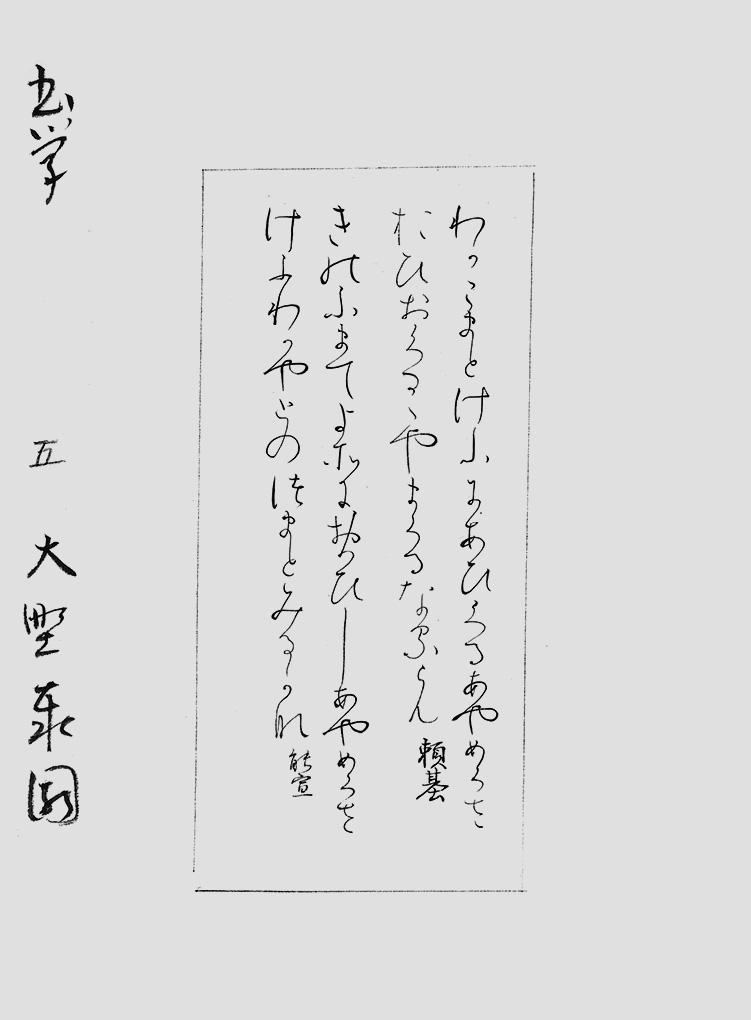 わかこまとけふにあひくるあやめくさ
おひおくるゝやまくるなるらん 頼基
きのふまてよそにおもひしあやめくさ
けふわかやとのつまとみるかな 能宣
書学 五 大野